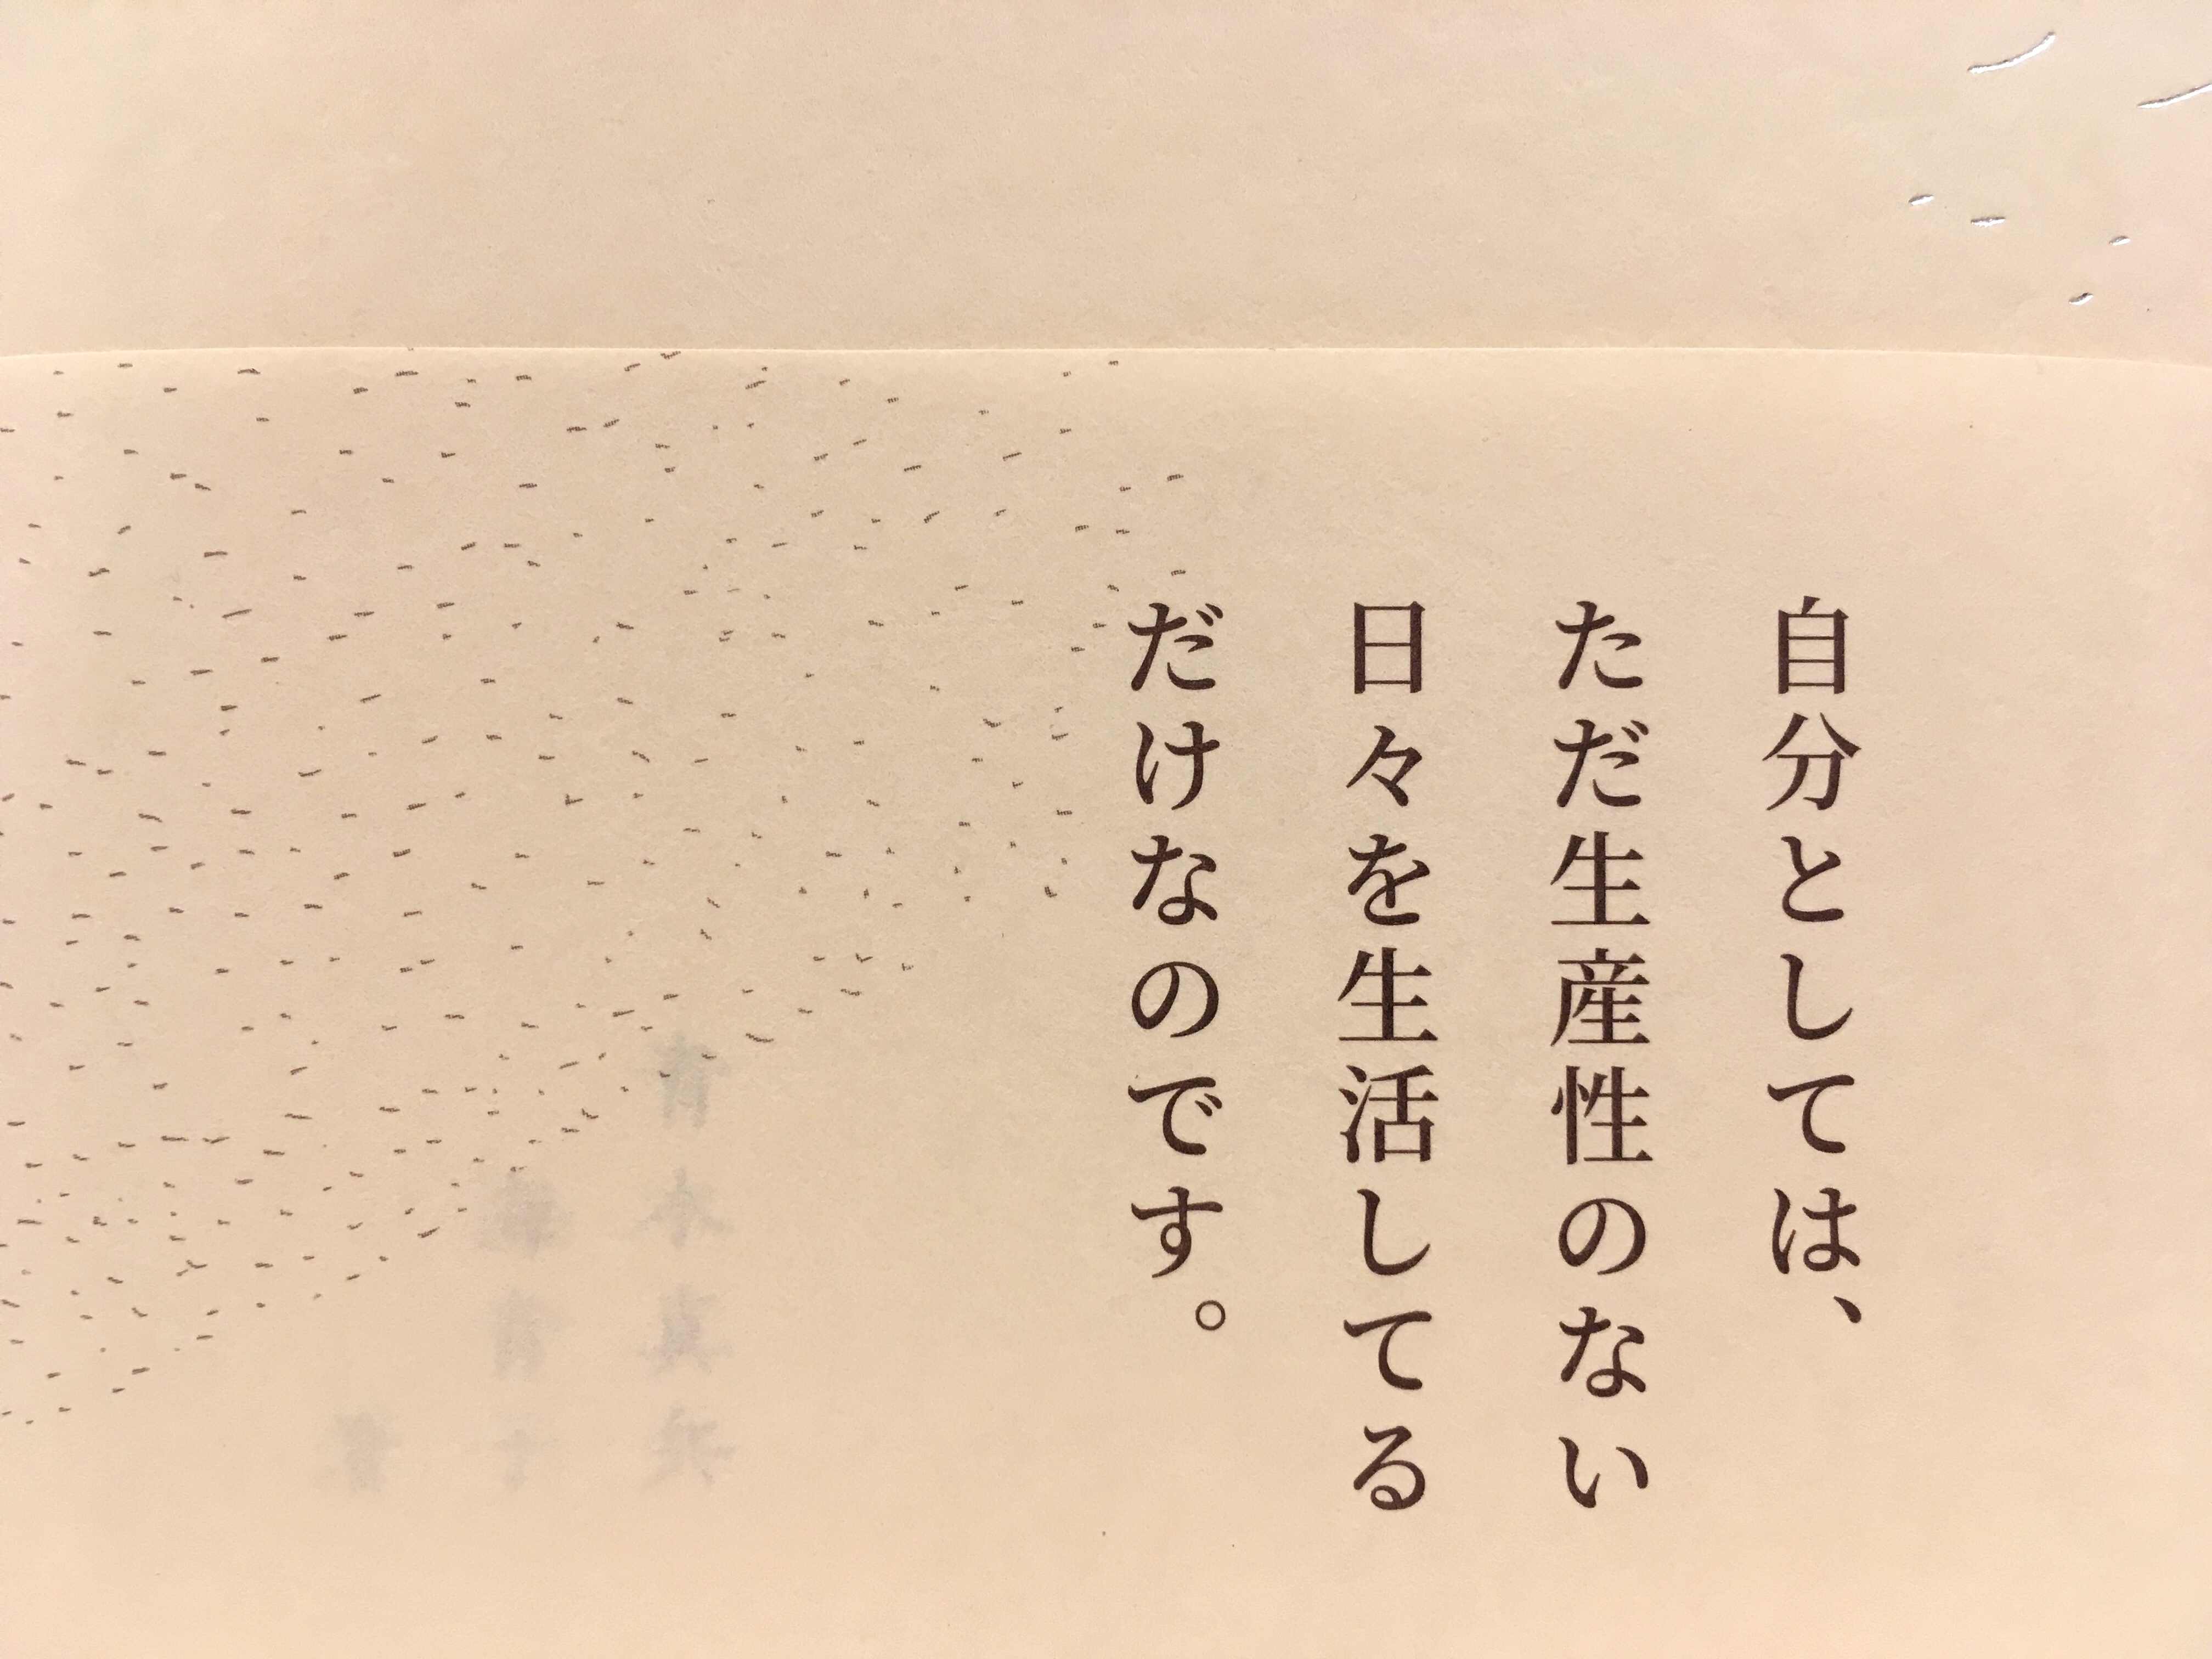 自分としては、
ただ生産性のない
日々を生活してる
だけなのです。